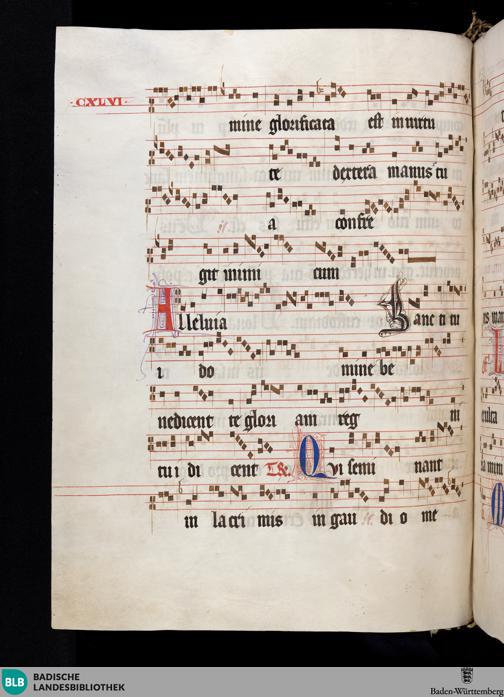 CXLVI
mine glorificata est in uirtu
te dextera manus tu
a confre
git inimi cum
Alleluia Sancti tu
i do mine be
nedicent te glori am reg ni
tui di cent Tr. Qui semi nant
in lacri mis in gau di o me
BLB BADISCHE
LANDESBIBLIOTHEK
Baden-Württemberg